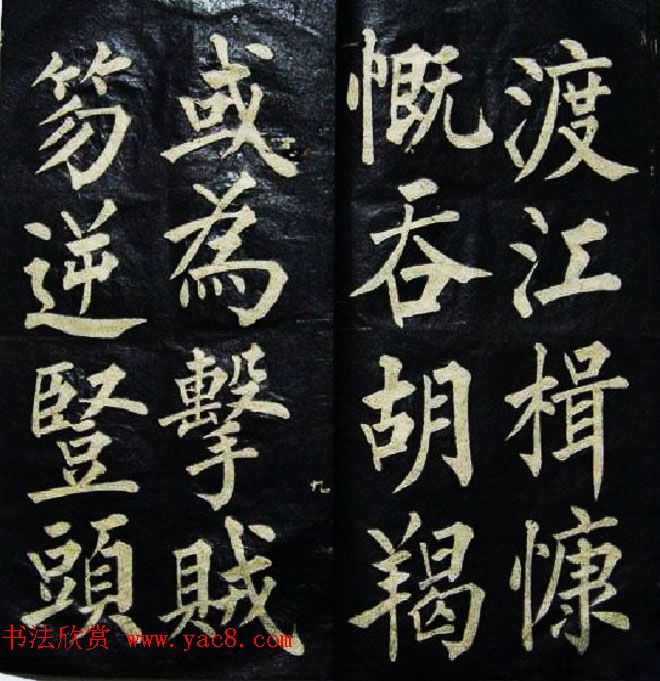 渡江楫慷
慨吞胡羯
或為擊賊
九
笏逆豎頭
书法欣赏 www.yac8.com